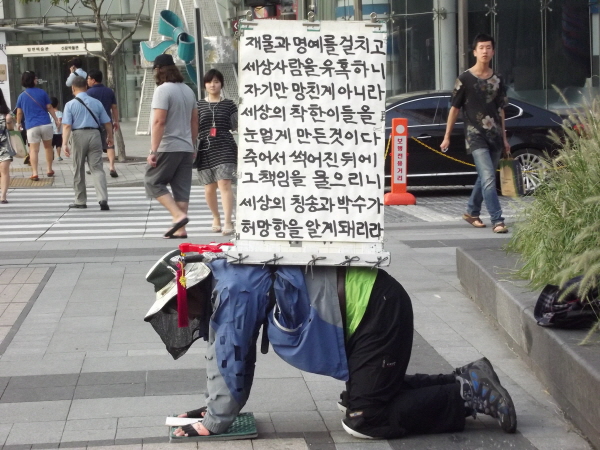 재물과 명예를 걸치고
세상사람을 유혹하니
자기만 망친게 아니라
세상의 착한이들을
눈멀게 만든것이다
죽어서 썩어진뒤에
그 책임을 물으리니
세상의 칭송과 박수가
허망함을 알게돼리라